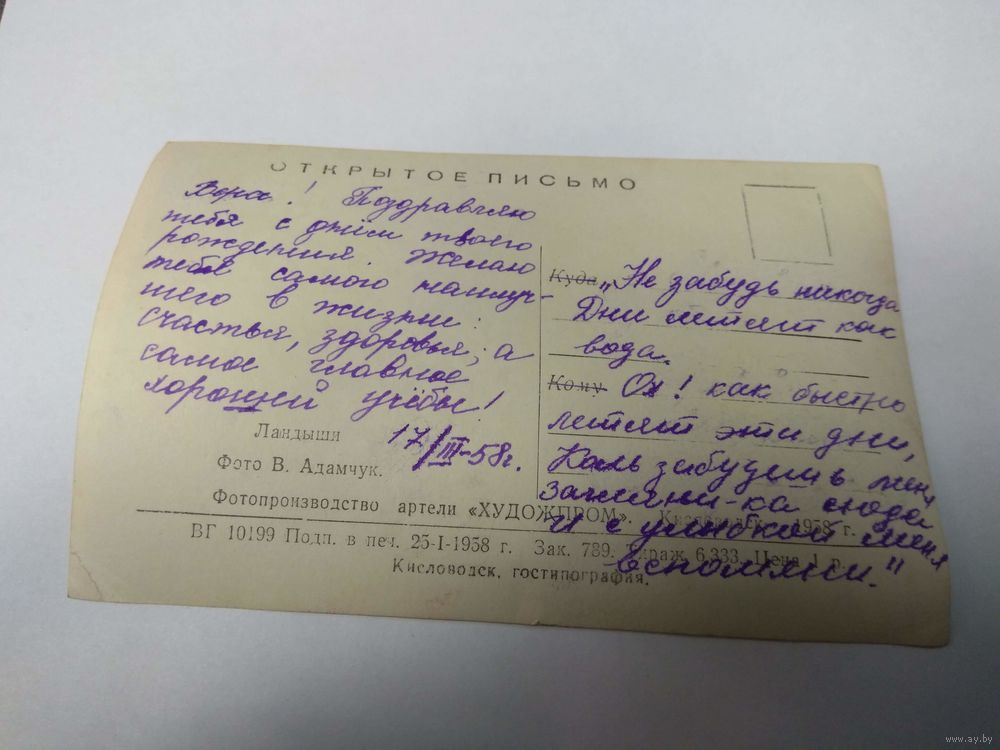 ОТКРЫТОЕ ПИСЬМО
Вера! Поздравляю
тебя с днём твоего
рождения. Желаю
тебе самого наилуч-
шего в жизни:
счастья, здоровья, а
самое главное
хорошей учёбы!
17/III-58г.
Ландыши
Фото В. Адамчук.
Куда „Не забудь никогда
Дни летят как
вода.
Кому Ох! как быстро
летят эти дни,
Коль забудешь меня
Загляни-ка сюда
И с улыбкой меня
вспомяни."
Фотопроизводство артели «ХУДОЖПРОМ». 1958 г.
ВГ 10199 Подп. в печ. 25-I-1958 г. Зак. 789. Тираж 6.333. Цена 1 р.
Кисловодск, гостипография.
www.ay.by